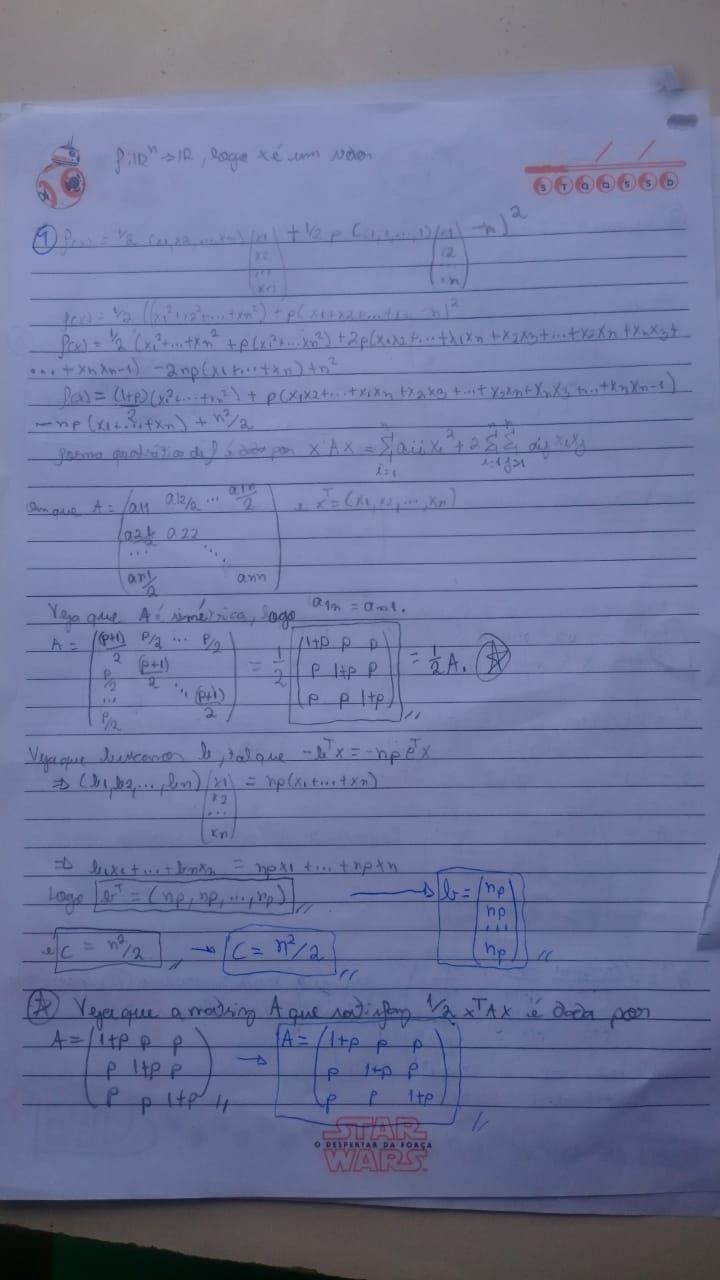 f: ℝⁿ → ℝ, logo x é um vetor
S T Q Q S S D
1 f(x) = 1/2 (x1, x2, ..., xn) (x1 x2 ... xn) + 1/2 p ((1, 1, ..., 1) (x1 x2 ... xn) - n)²
f(x) = 1/2 ((x1² + x2² + ... + xn²) + p(x1 + x2 + ... + xn - n)²
f(x) = 1/2 (x1² + ... + xn² + p(x1² + ... xn²) + 2p(x1x2 + ... + x1xn + x2x3 + ... + x2xn + xnx3 +
... + xnxn-1) - 2np(x1 + ... + xn) + n²
f(x) = (1+p)/2 (x1² + ... + xn²) + p(x1x2 + ... + x1xn + x2x3 + ... + x2xn + xnx3 + ... + xnxn-1)
- np(x1 + ... + xn) + n²/2
forma quadrática de f é dada por xᵀAx = Σ(i=1, n) aii xi² + 2 Σ(i=1, n) Σ(j>1, n) aij xi xj
em que A = (a11 a12/2 ... a1n/2
a21/2 a22
... ⋱
an1/2 ann) e xᵀ = (x1, x2, ..., xn)
Veja que A é simétrica, logo a1n = an1.
A = ((p+1)/2 p/2 ... p/2
p/2 (p+1)/2
... ⋱ (p+1)/2
p/2) = 1/2 (1+p p p
p 1+p p
p p 1+p) = 1/2 A. ☆
Veja que buscamos b, tal que -bᵀx = -np eᵀx
⇒ (b1, b2, ..., bn) (x1 x2 ... xn) = np(x1 + ... + xn)
⇒ b1x1 + ... + bnxn = npx1 + ... + npxn
Logo bᵀ = (np, np, ..., np) → b = (np np ... np)
e C = n²/2 → C = n²/2
☆ Veja que a matriz A que satisfaz 1/2 xᵀAx é dada por
A = (1+p p p
p 1+p p
p p 1+p) → A = (1+p p p
p 1+p p
p p 1+p)
STAR
O DESPERTAR DA FORÇA
WARS